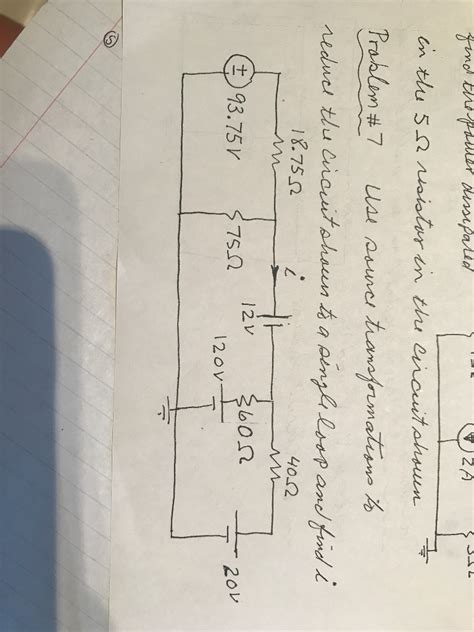 find the power dissipated
in the 5Ω resistor in the circuit shown
2A
Problem #7 Use source transformations to
reduce the circuit shown to a single loop and find i
18.75Ω
i
12V
40Ω
93.75V
75Ω
60Ω
120V
20V
15